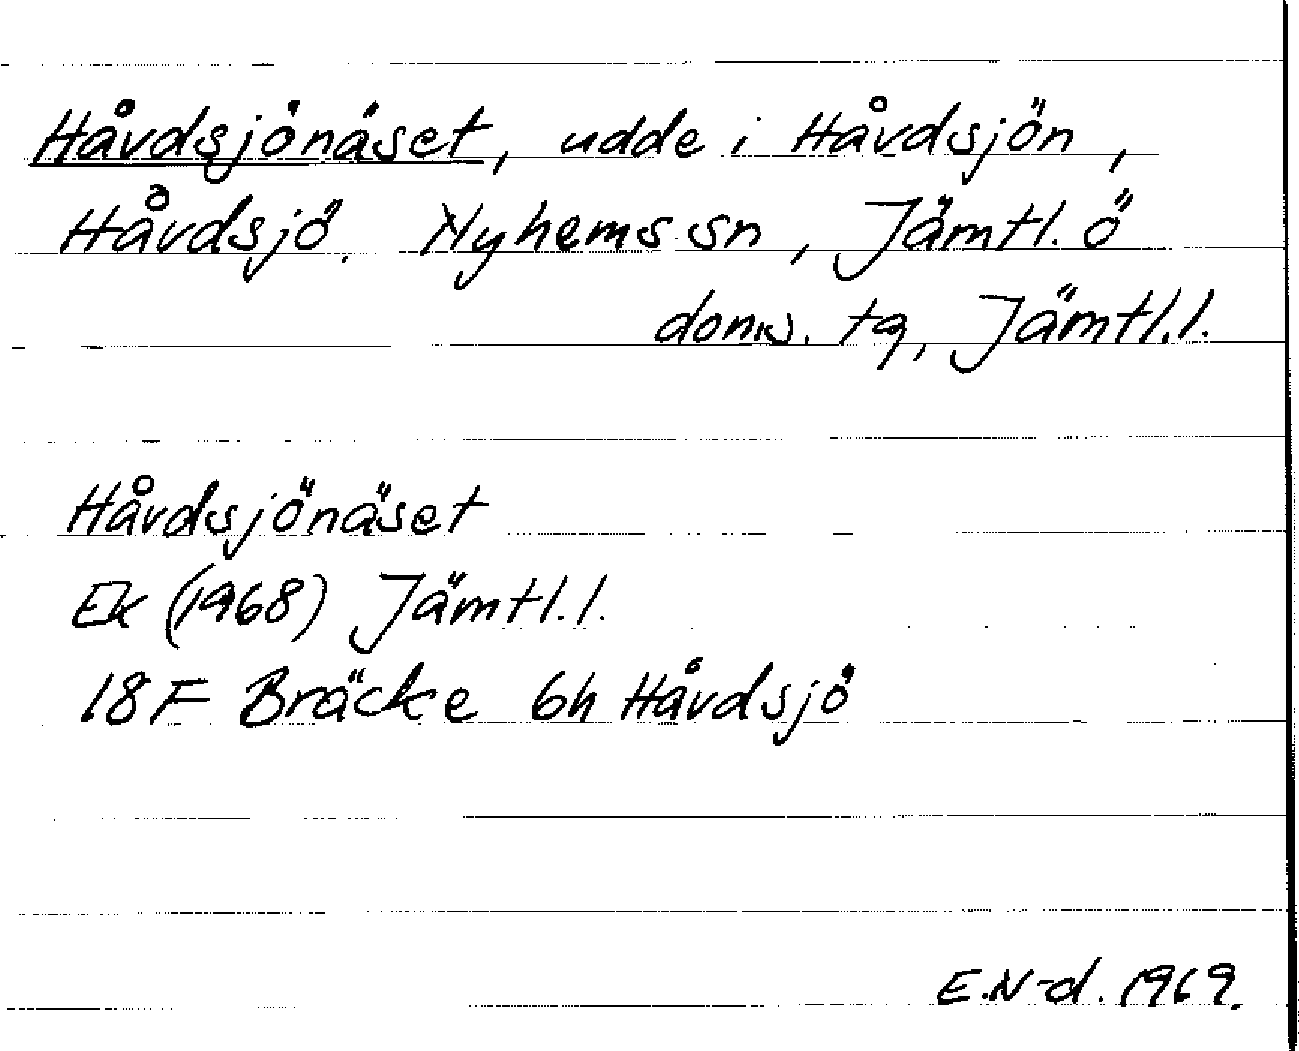 Håvdsjönäset, udde i Håvdsjön,
Håvdsjö, Nyhems sn, Jämtl. ö
doms. tq, Jämtl.l.
Håvdsjönäset
Ek (1968) Jämtl.l.
18 F Bräcke 6h Håvdsjö
E.N-d. 1969.